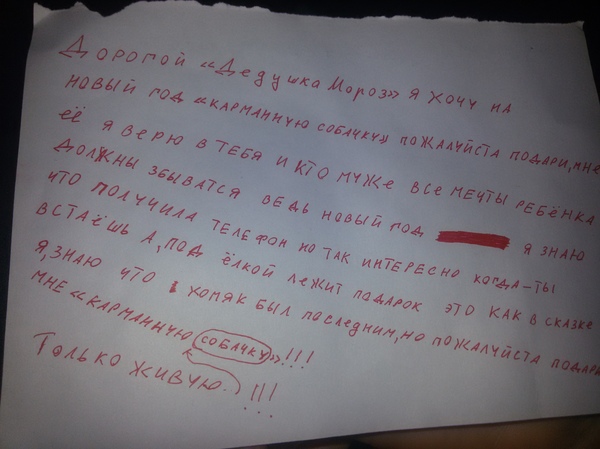 Дорогой «Дедушка Мороз» я хочу на
новый год «карманную собачку» пожалуйста подари, мне
её я верю в тебя и кто муже все мечты ребёнка
должны збыватся ведь новый год я знаю
что получила телефон но так интересно когда-ты
встаёшь а, под ёлкой лежит подарок это как в сказке
я, знаю что хомяк был последним, но пожалуйста подари
мне «карманную собачку»!!!
Только живую. !!!